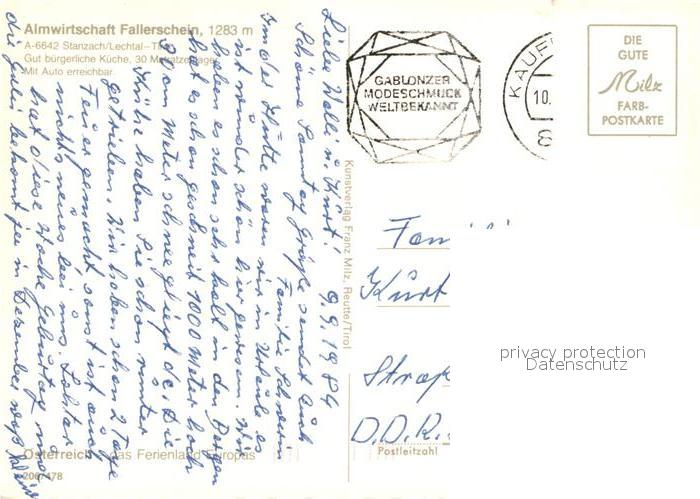 Almwirtschaft Fallerschein, 1283 m
A-6642 Stanzach/Lechtal-Tirol
Gut bürgerliche Küche, 30 Matratzenlager
Mit Auto erreichbar
Liebe Walli u. Kurt! 9.9.1984
Schöne Sonntag Grüße sendet Euch
Familie Schwein
In der Hütte waren wir in Urlaub es
ist wunder schön hier gewesen. Wir
haben es schon sehr kalt in den Bergen
hat es schon geschneit 1000 Meter hoch
Meter schnee liegt da. Die
Kühe haben Sie schon runter
getrieben. Wir haben schon 2 Tage
Feuer gemacht sonst ist auch
nichts neues bei uns. Lothar
hat diese Woche Geburtag
die Juli bekomt sie in Dezember
Österreich das Ferienland Europas
206/478
Kunstverlag Franz Milz, Reutte/Tirol
GABLONZER
MODESCHMUCK
WELTBEKANNT
KAUF
10.
8
DIE
GUTE
Milz
FARB-
POSTKARTE
Fam
Kurt
Straß
D.D.R.
Postleitzahl
privacy protection
Datenschutz